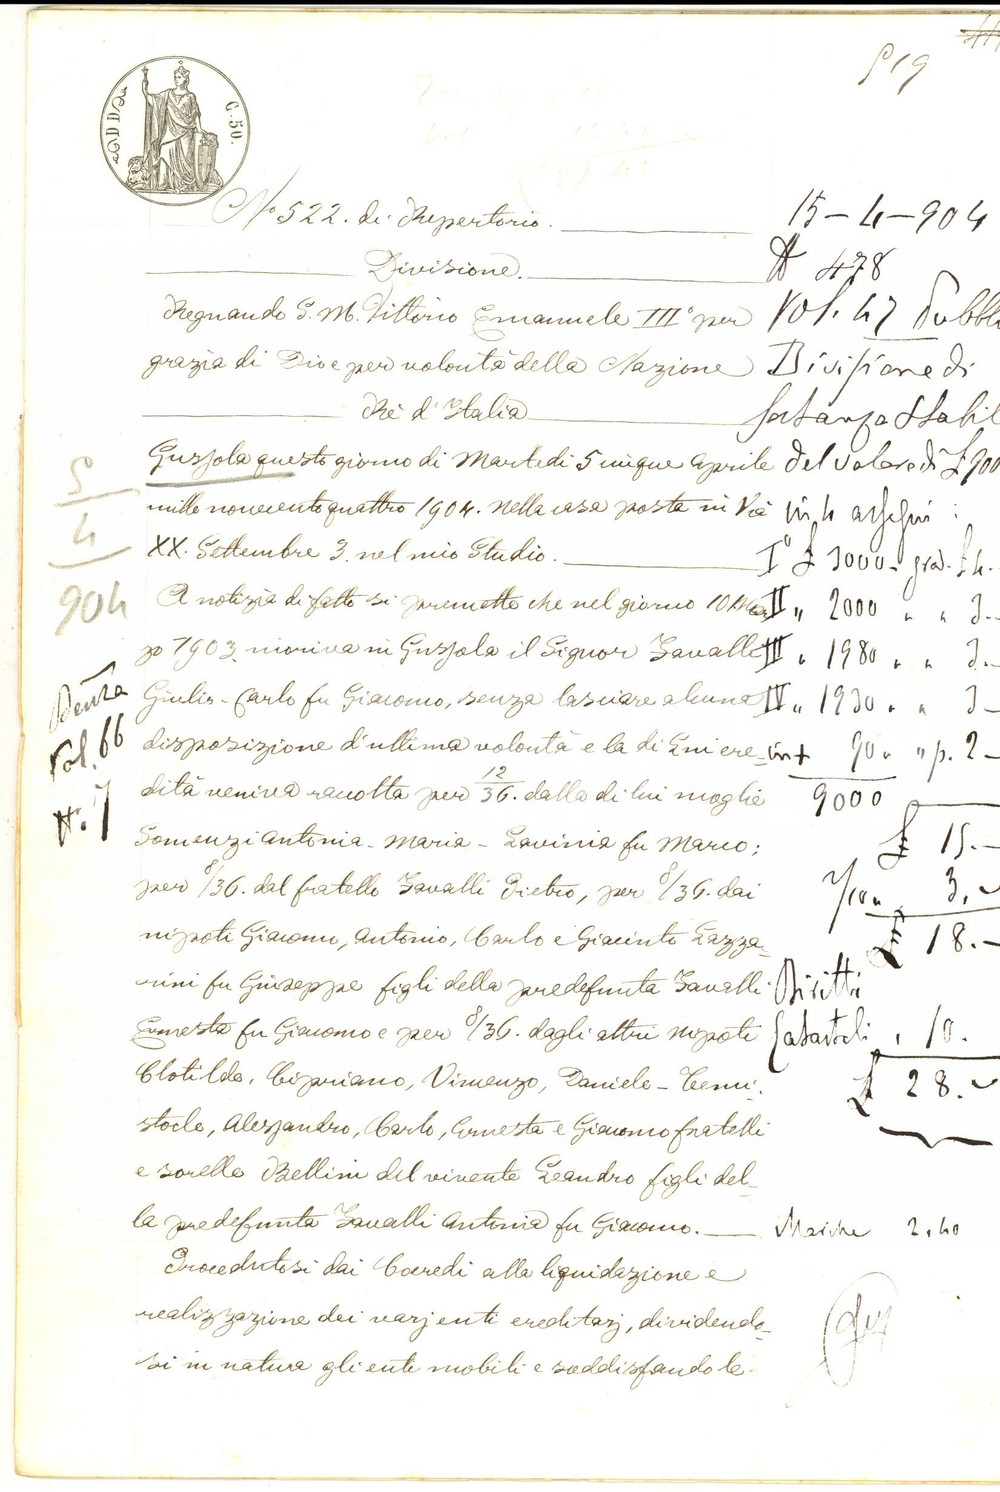 519
C. 50.
N° 522. di Repertorio.
Divisione.
Regnando S. M. Vittorio Emanuele III° per
grazia di Dio e per volontà della Nazione
Rè d'Italia
Gussola questo giorno di Martedi 5 cinque Aprile
mille novecento quattro 1904. nella casa posta in Via
XX. Settembre 3. nel mio Studio.
A notizia di fatto si premette che nel giorno 10 Mar
zo 1903. moriva in Gussola il Signor Zavalli
Giulio-Carlo fu Giacomo, senza lasciare alcuna
disposizione d'ultima volontà e la di Lui ere-
dità veniva raccolta per 12/36. dalla di lui moglie
Somenzi Antonia-Maria-Lavinia fu Marco;
per 8/36. dal fratello Zavalli Pietro, per 8/36. dai
nipoti Giacomo, Antonio, Carlo e Giacinto Lazza-
rini fu Giuseppe figli della predefunta Zavalli
Ernesta fu Giacomo e per 8/36. dagli altri nipoti
Clotilde, Cipriano, Vincenzo, Daniele-Temi-
stocle, Alessandro, Carlo, Ernesta e Giacomo fratelli
e sorelle Bellini del vivente Leandro figli del-
la predefunta Zavalli Antonia fu Giacomo.
Procedutosi dai Coeredi alla liquidazione e
realizzazione dei varj enti ereditarj, dividendo-
si in natura gli enti mobili e soddisfando le
5
4
904
Denza
Vol. 66
N. 7
15-4-904
N 478
Vol. 47 Pubbli
Divisione di
sostanza Stabil
del valore di £ 900
in 4 assegni:
I° £ 3000- grad. £ 4.
II " 2000 " " 3-
III " 1980 " " 3-
IV " 1930 " " 3-
in + 90. " p. 2-
9000
£ 15.-
2/10 3.-
£ 18.-
Diritti
Catastali 10.
£ 28.-
Marche 2.40